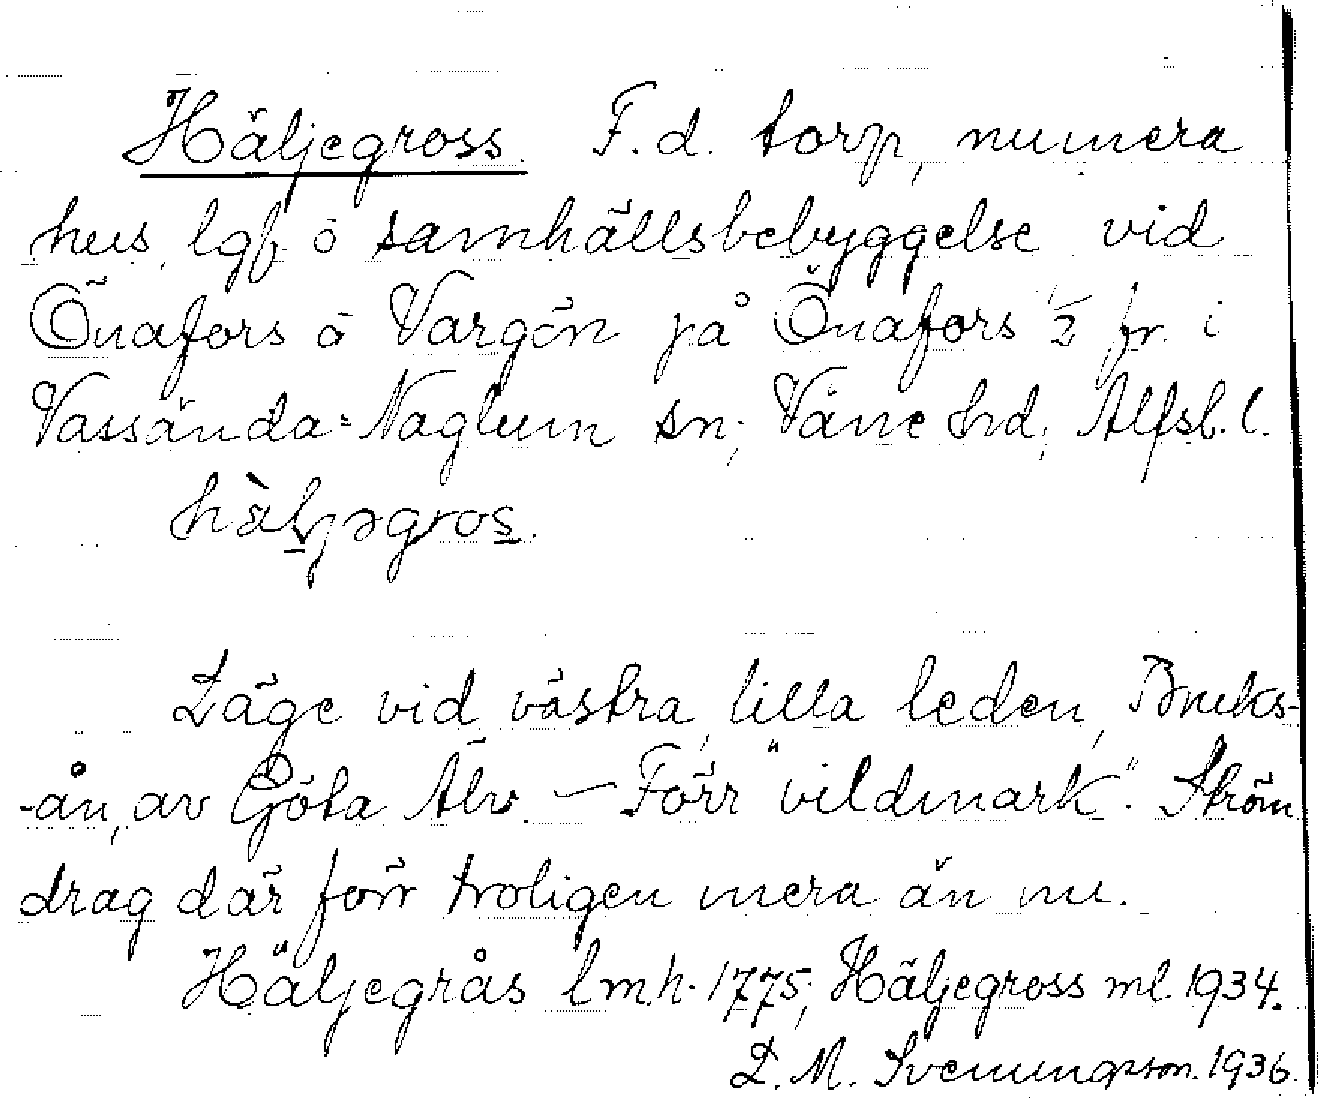 Häljegross. F.d. torp, numera
hus, lgf ö samhällsbebyggelse vid
Önafors ö Vargön på Önafors 1/2 fr. i
Vassända-Naglum sn; Väne hd, Älfsb. l.
hàljəgros.
Läge vid västra, lilla leden, Bruks-
-ån, av Göta Älv. — Förr "vildmark". Ström
drag där förr troligen mera än nu.
Häljegrås lmh. 1775; Häljegross ml. 1934.
D. M. Svenungsson. 1936.